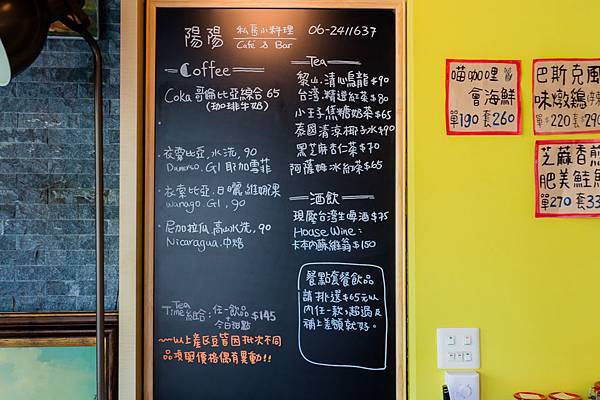 陽陽 私房小料理 06-2411637
Café & Bar
Coffee
Coka 哥倫比亞綜合 65
(珈琲牛奶)
衣索比亞,水洗, 90
G1 耶加雪菲
衣索比亞.日曬
G1, 90
尼加拉瓜.高山水洗, 90
Nicaragua.中焙
Tea
Time 組合: 任一飲品 $145
今日甜點
~以上產區豆皆因批次不同
品項與價格偶有異動!!
Tea
黎山.清心烏龍 $90
台湾.精選紅茶 $80
小王子.焦糖奶茶 $65
泰國清涼椰子水 $90
黑芝麻杏仁茶 $70
阿薩姆冰紅茶 $65
酒飲
現壓台湾生啤酒 $75
House Wine:
卡本內蘇維翁 $150
餐點套餐飲品
請挑選$65元以
內任一款,超過
補上差額就好。
喵咖哩
會海鮮
單190 套260
巴斯克風
味燉雞
單$220 套$290
芝麻香煎
肥美鮭魚
單270 套33